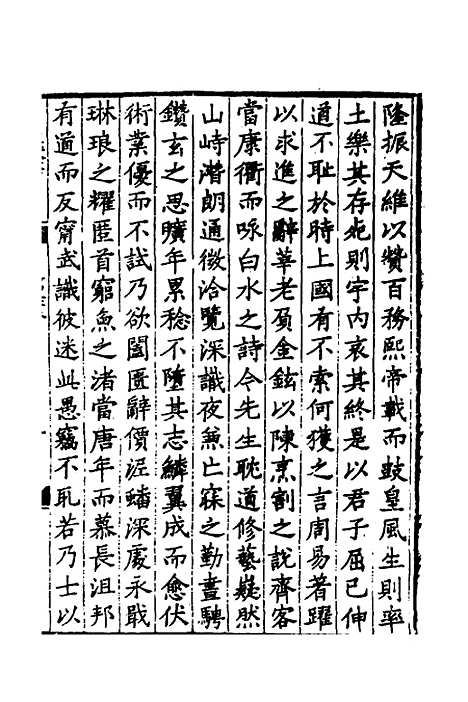 隆振天維以贊百務熙帝載而鼓皇風生則率
土樂其存死則宇内哀其終是以君子屈己伸
道不耻於時上國有不索何獲之言周易著躍
以求進之辭莘老負金鉉以陳烹割之說齊客
當康衢而咏白水之詩令先生耽道修藝嶷然
山峙潛朗通微洽覽深識夜兼忘寐之勤晝騁
鑽玄之思曠年累稔不墮其志鱗翼成而愈伏
術業優而不試乃欲闔匱辭價泥蟠深處永戢
琳琅之耀匿首窮魚之渚當唐年而慕長沮邦
有道而反甯武識彼迷此愚竊不取若乃士以